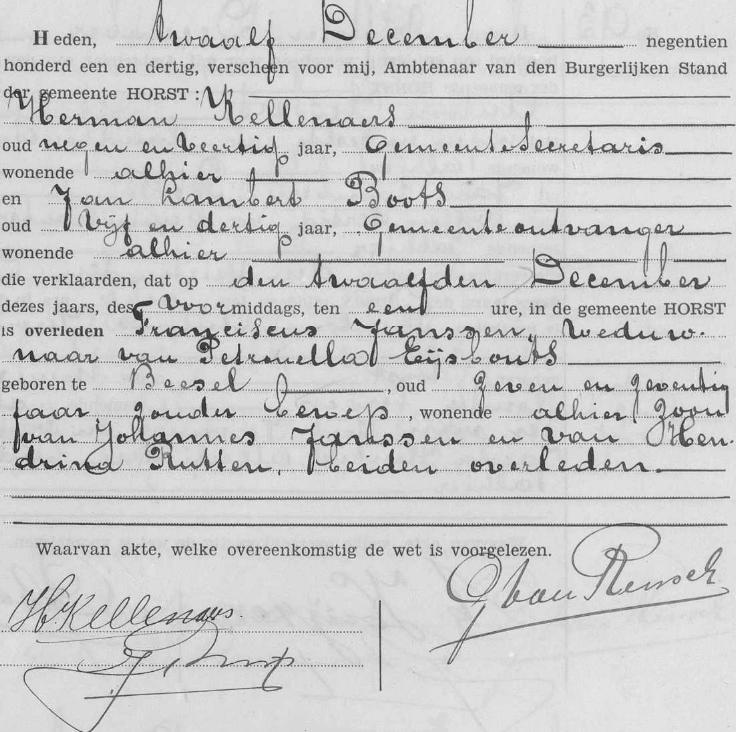 Heden, twaalf December negentien
honderd een en dertig, verscheen voor mij, Ambtenaar van den Burgerlijken Stand
der gemeente HORST :
Herman Kellenaers
oud negen en veertig jaar, Gemeentesecretaris
wonende alhier
en Jan Lambert Boots
oud vijf en dertig jaar, Gemeenteontvanger
wonende alhier
die verklaarden, dat op den twaalfden December
dezes jaars, des voormiddags, ten een ure, in de gemeente HORST
is overleden Franciscus Janssen, weduw-
naar van Petronella Eijsbouts
geboren te Beesel, oud zeven en zeventig
jaar zonder beroep, wonende alhier zoon
van Johannes Janssen en van Hen-
drina Rutten, beiden overleden.
Waarvan akte, welke overeenkomstig de wet is voorgelezen.
HKellenaers.